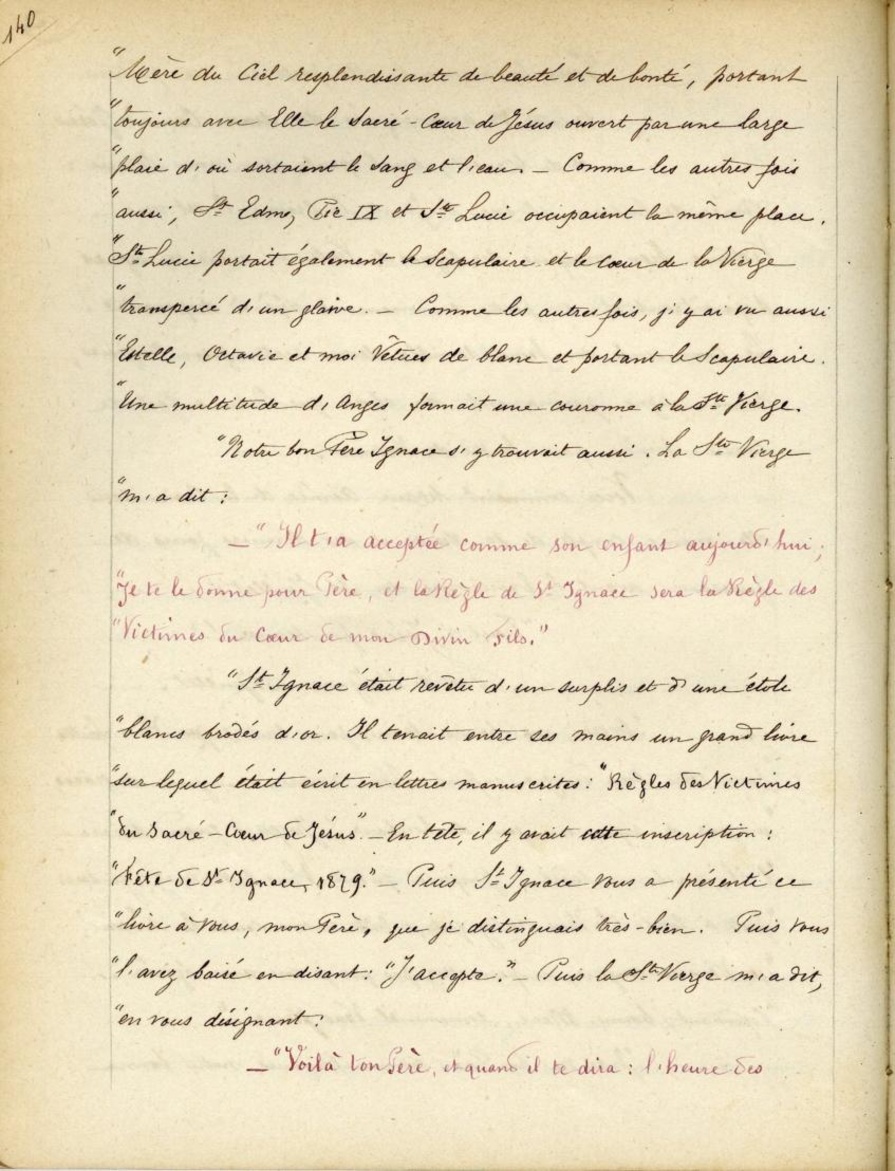 140
"Mère du Ciel resplendissante de beauté et de bonté, portant
"toujours avec Elle le Sacré-Cœur de Jésus ouvert par une large
"plaie d'où sortaient le Sang et l'eau. — Comme les autres fois
"aussi, St Edme, Pie IX et Ste Lucie occupaient la même place.
"Ste Lucie portait également le Scapulaire et le cœur de la Vierge
"transpercé d'un glaive. — Comme les autres fois, j'y ai vu aussi
"Estelle, Octavie et moi Vêtues de blanc et portant le Scapulaire.
"Une multitude d'Anges formait une couronne à la Ste Vierge.
"Notre bon Père Ignace s'y trouvait aussi. La Ste Vierge
"m'a dit :
—" Il t'a acceptée comme son enfant aujourd'hui ;
"Je te le donne pour Père, et la Règle de St Ignace sera la Règle des
"Victimes du Cœur de mon Divin Fils."
"St Ignace était revêtu d'un surplis et d'une étole
"blancs brodés d'or. Il tenait entre ses mains un grand livre
"sur lequel était écrit en lettres manuscrites : "Règles des Victimes
"du Sacré-Cœur de Jésus" — En tête, il y avait cette inscription :
"Fête de St Ignace, 1879." — Puis St Ignace vous a présenté ce
"livre à vous, mon Père, que je distinguais très-bien. Puis vous
"l'avez baisé en disant : "J'accepte." — Puis la Ste Vierge m'a dit,
"en vous désignant :
—"Voilà ton Père, et quand il te dira : l'heure des